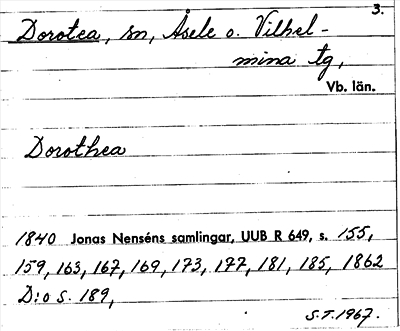 3.
Dorotea, sn, Åsele o. Vilhel-
mina tg,
Vb. län.
Dorothea
1840 Jonas Nenséns samlingar, UUB R 649, s. 155,
159, 163, 167, 169, 173, 177, 181, 185, 1862
D:o S. 189,
S.T. 1967.